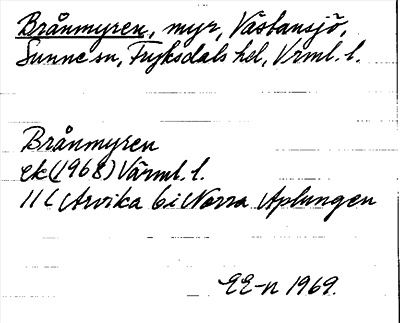 Brånmyren, myr, Västansjö,
Sunne sn, Fryksdals hd, Vrml. l.
Brånmyren
ek (1968) Värml. l.
11 C Arvika 6 i Norra Aplungen
EE-n 1969.